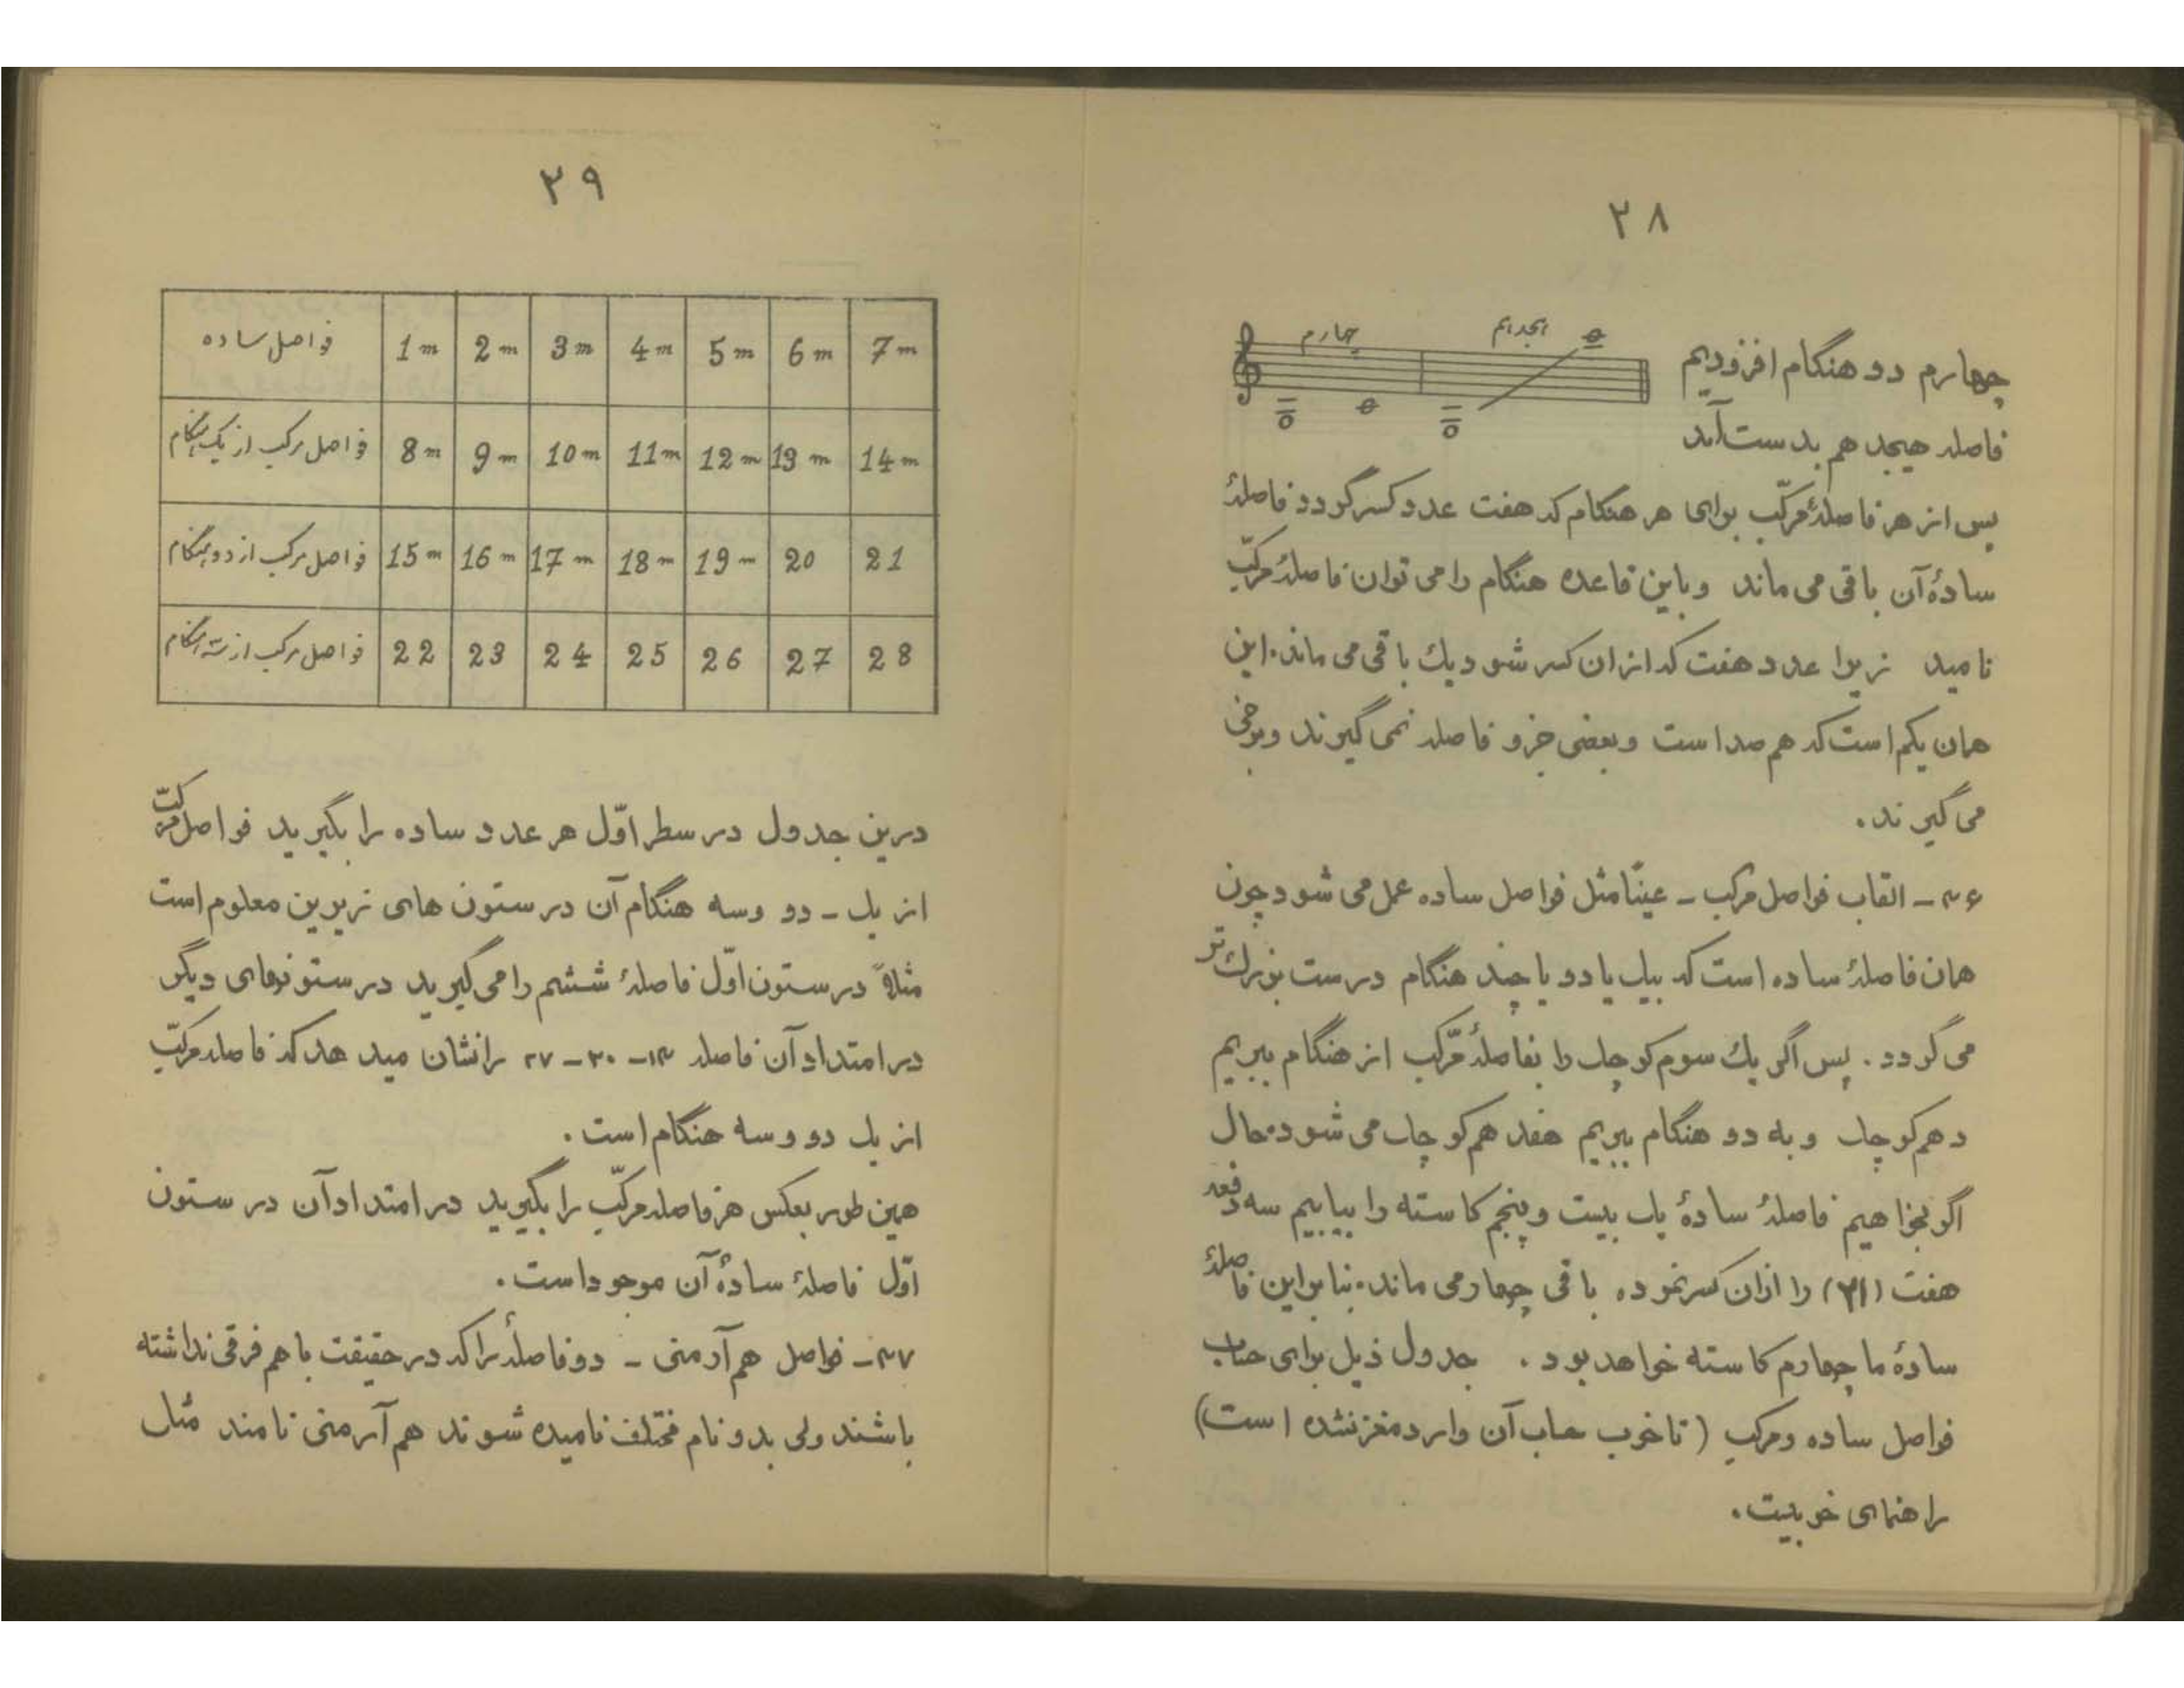 ۳۸
چهارم
هیجدهم
چهارم دو هنگام افزودیم
فاصله هیجدهم بدست آمد
پس از هر فاصلهٔ مرکّب برای هر هنگام که هفت عدد کسر گردد فاصلهٔ
سادهٔ آن باقی می ماند و باین قاعده هنگام را می توان فاصلهٔ مرکّب
نامید زیرا عدد هفت که از ان کسر شود یک باقی می ماند. این
همان یکم است که هم صداست و بعضی جزو فاصله نمی گیرند و برخی
می گیرند.
۴۶ - القاب فواصل مرکب - عینًا مثل فواصل ساده عمل می شود چون
همان فاصلهٔ ساده است که بیک یا دو یا چند هنگام درست بزرک تر
می گردد. پس اگر یک سوم کوچک را بفاصلهٔ مرّکب از هنگام ببریم
دهم کوچک و به دو هنگام ببریم هفدهم کوچک می شود. حال
اگر بخواهیم فاصلهٔ سادهٔ یک بیست و پنجم کاسته را بیابیم سه دفعه
هفت (۲۱) را ازان کسر نموده باقی چهار می ماند. بنابراین فاصلهٔ
سادهٔ ما چهارم کاسته خواهد بود. جدول ذیل برای حساب
فواصل ساده و مرکب (تا خوب حساب آن وارد مغز نشده است)
راهنمای خوبیست.
۳۹
فواصل ساده 1m 2m 3m 4m 5m 6m 7m
فواصل مرکب از یک هنگام 8m 9m 10m 11m 12m 13m 14m
فواصل مرکب از دو هنگام 15m 16m 17m 18m 19m 20 21
فواصل مرکب از سه هنگام 22 23 24 25 26 27 28
درین جدول در سطر اوّل هر عدد ساده را بگیرید فواصل مرکّب
از یک - دو و سه هنگام آن در ستون های زیرین معلوم است
مثلاً در ستون اوّل فاصلهٔ ششم را می گیرید در ستونهای دیگر
در امتداد آن فاصله ۱۳ - ۲۰ - ۲۷ را نشان میدهد که فاصله مرکّب
از یک دو و سه هنگام است.
همین طور بعکس هر فاصله مرکّب را بگیرید در امتداد آن در ستون
اوّل فاصلهٔ سادهٔ آن موجود است.
۴۷ - فواصل هم آرمنی - دو فاصلهٔ را که در حقیقت با هم فرقی نداشته
باشند ولی بدو نام مختلف نامیده شوند هم آرمنی نامند مثل